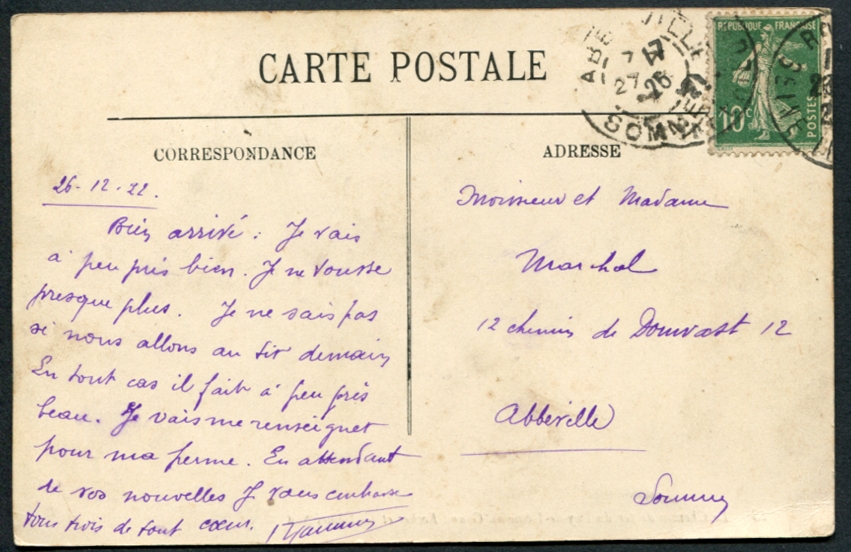 CARTE POSTALE
CORRESPONDANCE
26-12-22.
Bien arrivé : Je vais
à peu près bien. Je ne tousse
presque plus. Je ne sais pas
si nous allons au tir demain
En tout cas il fait à peu près
beau. Je vais me renseigner
pour ma ferme. En attendant
de vos nouvelles Je vous embrasse
tous trois de tout cœur.
ADRESSE
Monsieur et Madame
Marchal
12 chemin de Douvast 12
Abbeville
Somme
ABBEVILLE
27
SOMME
REPUBLIQUE FRANÇAISE
10c
POSTES